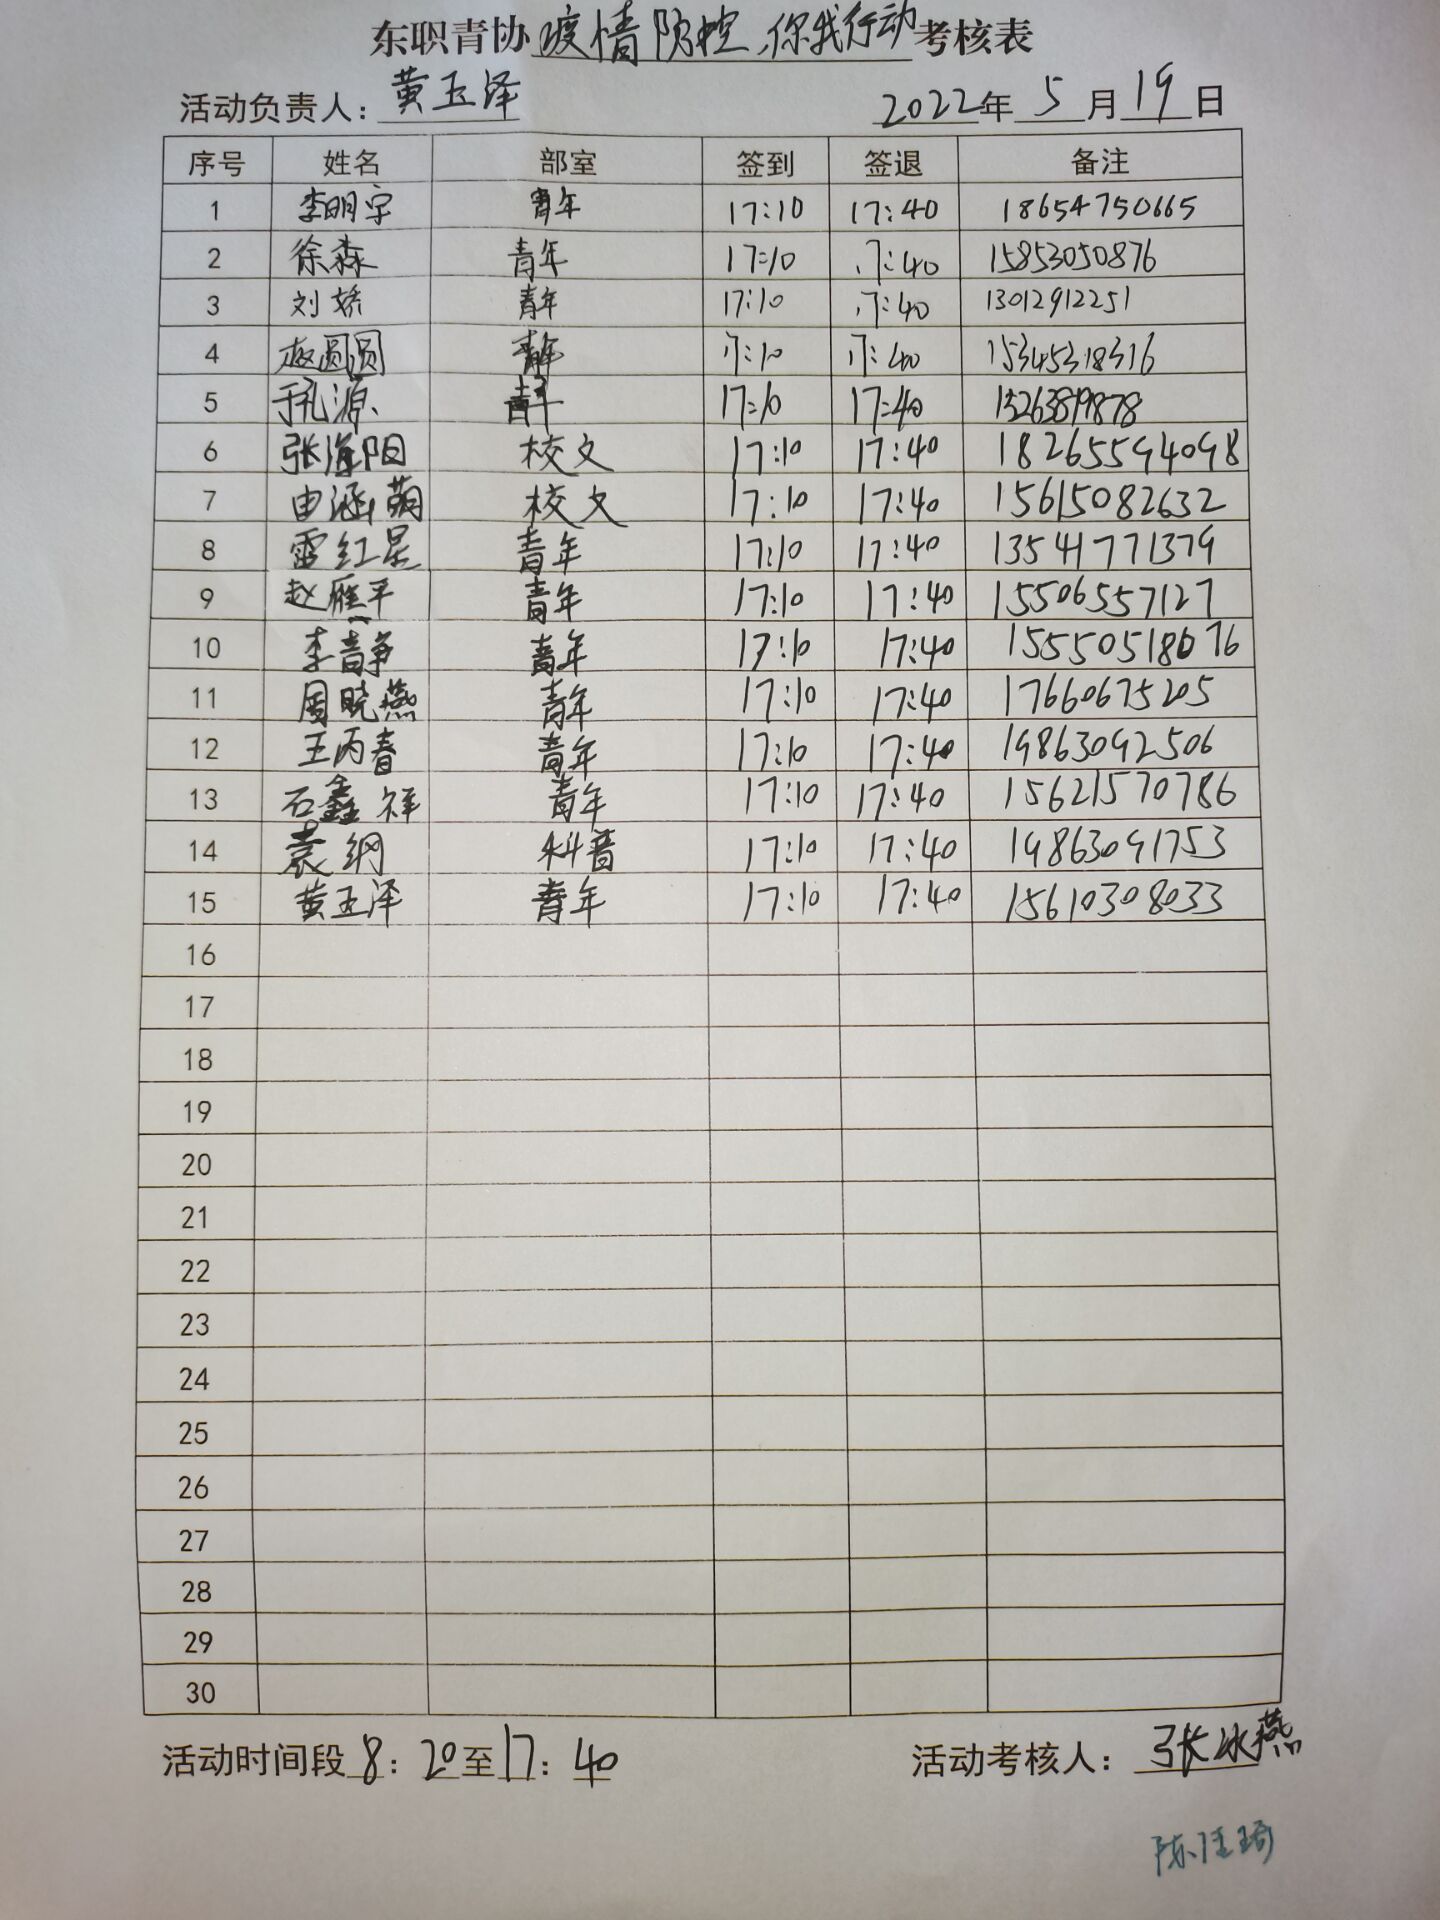 东职青协疫情防控,你我行动考核表
活动负责人：黄玉泽 2022年5月19日
序号 姓名 部室 签到 签退 备注
1 李明宇 青年 17:10 17:40 18654750665
2 徐淼 青年 17:10 17:40 15853050876
3 刘娇 青年 17:10 17:40 13012912251
4 赵圆圆 青年 17:10 17:40 15345318316
5 于孔源 青年 17:10 17:40
6 张海阳 校文 17:10 17:40 18265594098
7 由涵萌 校文 17:10 17:40 15615082632
8 雷红星 青年 17:10 17:40 13541771379
9 赵雁平 青年 17:10 17:40 15506557127
10 李青争 青年 17:10 17:40 15550518676
11 周晓燕 青年 17:10 17:40 17660675205
12 王丙春 青年 17:10 17:40 19863092506
13 石鑫祥 青年 17:10 17:40 15621570786
14 袁纲 科普 17:10 17:40 19863091753
15 黄玉泽 青年 17:10 17:40 15610308033
16
17
18
19
20
21
22
23
24
25
26
27
28
29
30
活动时间段8：20至17：40 活动考核人：张冰燕
陈佳琦